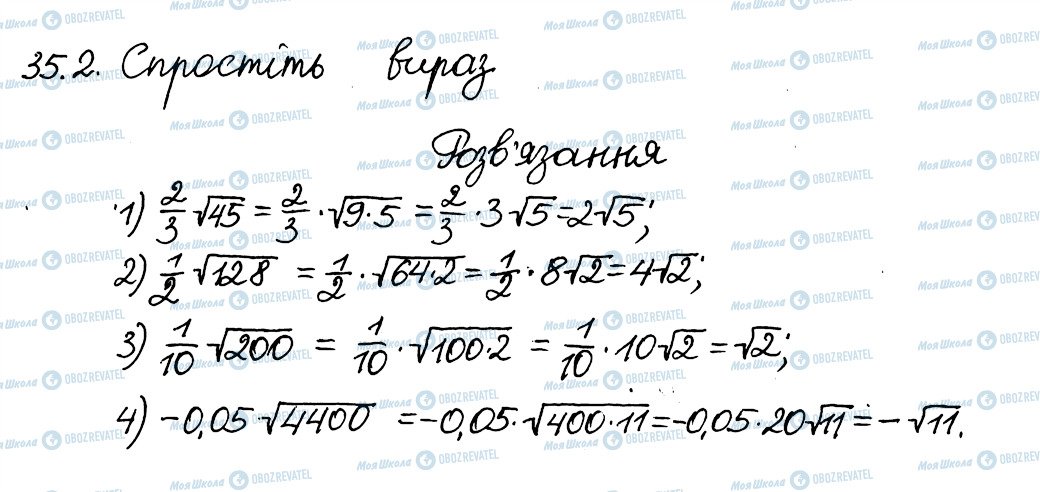 35.2. Спростіть вираз
Розв'язання
1) 2/3 √45 = 2/3 · √9·5 = 2/3 · 3√5 = 2√5;
2) 1/2 √128 = 1/2 · √64·2 = 1/2 · 8√2 = 4√2;
3) 1/10 √200 = 1/10 · √100·2 = 1/10 · 10√2 = √2;
4) -0,05·√4400 = -0,05·√400·11 = -0,05·20√11 = -√11.